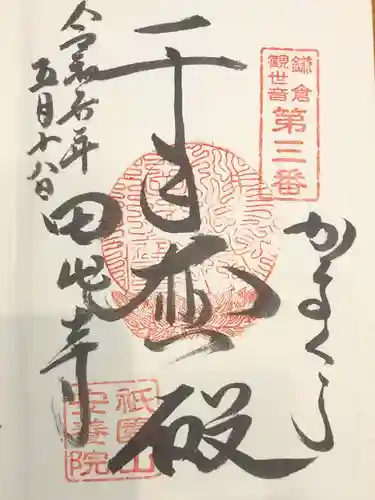 鎌倉
観世音
第三番
かまくら
千手悲殿
田代寺
令和六年
五月十八日
祇園山
安養院